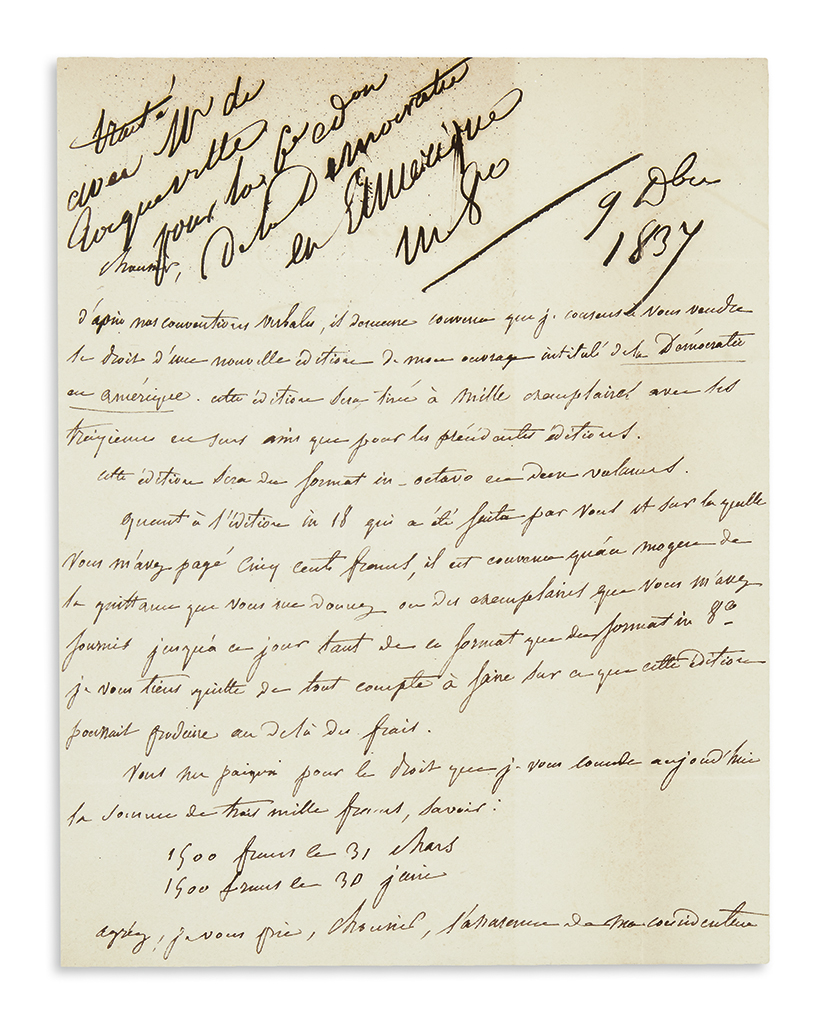 traité
avec Mr de
Tocqueville
pour la 6e edon
De la Democratie
en Amerique
in 8o
9 Dbre
1837
Monsieur,
d'après nos conventions verbales, il demeure convenu que je consens à vous vendre
le droit d'une nouvelle édition de mon ouvrage intitulé de la Démocratie
en amérique. cette édition sera tirée à mille exemplaires avec les
treizièmes en sus ainsi que pour les précédentes éditions.
cette édition sera du format in-octavo en deux volumes.
quant à l'édition in 18 qui a été faite par vous et sur la quelle
vous m'avez payé cinq cents francs, il est convenu qu'au moyen de
la quittance que vous me donnez des exemplaires que vous m'avez
fournis jusqu'à ce jour tant de ce format que du format in 8o
je vous tiens quitte de tout compte à faire sur ce que cette édition
pourrait produire au delà des frais.
Vous me paierez pour le droit que je vous concède aujourd'hui
la somme de trois mille francs, savoir:
1500 francs le 31 Mars
1500 francs le 30 juin
agréez, je vous prie, Monsieur, l'assurance de ma considération